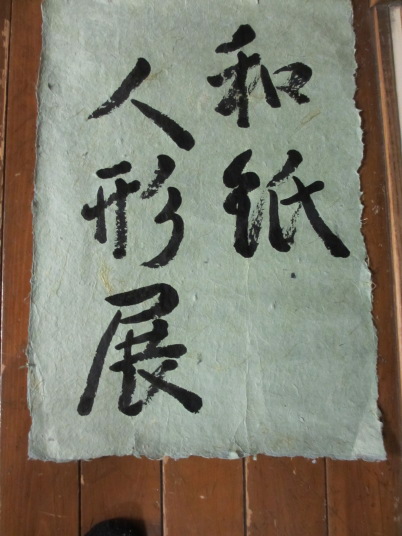 和紙
人形展